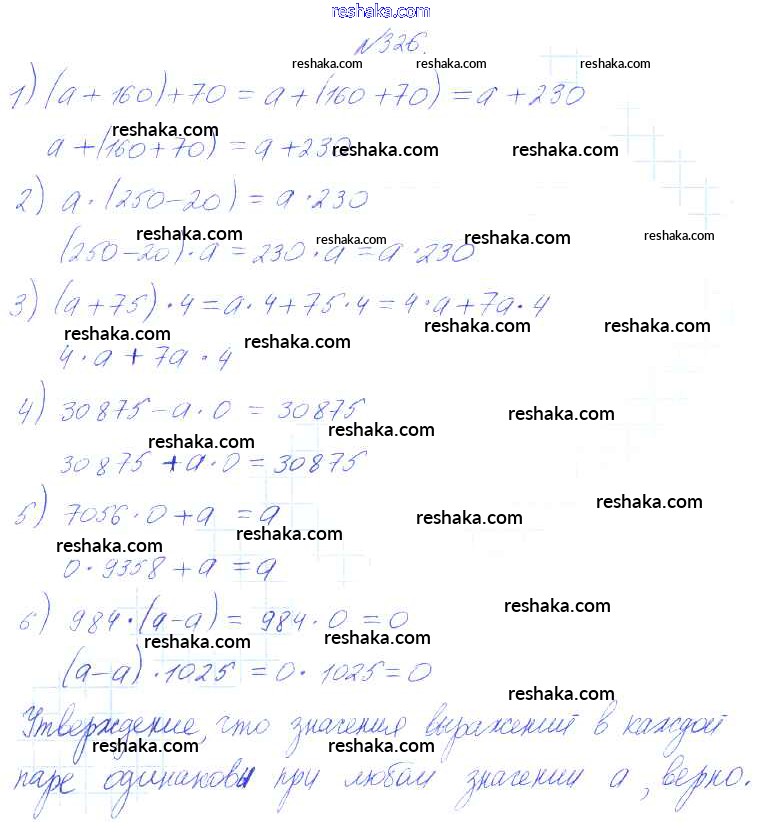 www.reshaka.com
№326.
reshaka.com reshaka.com reshaka.com
1) (a + 160) + 70 = a + (160 + 70) = a + 230
reshaka.com
a + (160 + 70) = a + 230
reshaka.com reshaka.com
2) a · (250 - 20) = a · 230
reshaka.com reshaka.com reshaka.com reshaka.com
(250 - 20) · a = 230 · a = a · 230
3) (a + 75) · 4 = a · 4 + 75 · 4 = 4 · a + 7a · 4
reshaka.com reshaka.com reshaka.com reshaka.com
4 · a + 7a · 4
4) 30875 - a · 0 = 30875
reshaka.com reshaka.com reshaka.com
30875 + a · 0 = 30875
5) 7056 · 0 + a = a
reshaka.com reshaka.com reshaka.com reshaka.com
0 · 9358 + a = a
6) 984 · (a - a) = 984 · 0 = 0
reshaka.com reshaka.com reshaka.com
(a - a) · 1025 = 0 · 1025 = 0
reshaka.com
Утверждение, что значения выражений в каждой
reshaka.com reshaka.com reshaka.com
паре одинаковы при любом значении a, верно.